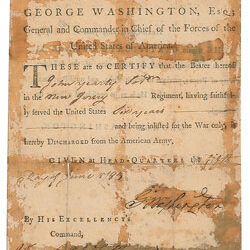 GEORGE WASHINGTON, Esq;
General and Commander in Chief of the Forces of the
United States of America.
THESE are to CERTIFY that the Bearer hereof
John
in the New Jersey Regiment, having faithful-
ly served the United States
and being inlisted for the War only, is
hereby DISCHARGED from the American Army.
GIVEN at HEAD-QUARTERS the
Day of June 1783
GWashington
By HIS EXCELLENCY'S
Command,